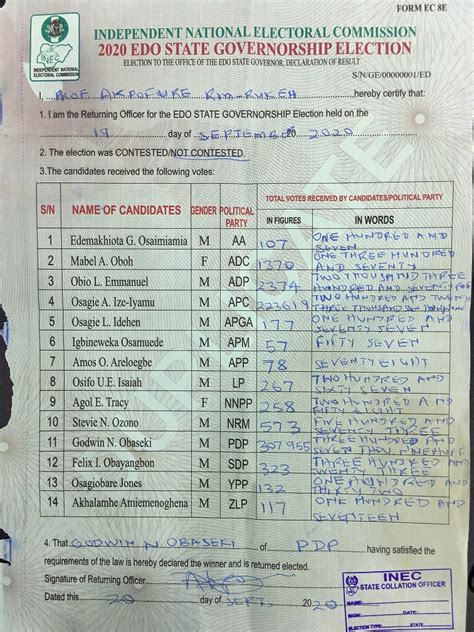 FORM EC 8E
INDEPENDENT NATIONAL ELECTORAL COMMISSION
2020 EDO STATE GOVERNORSHIP ELECTION
ELECTION TO THE OFFICE OF THE EDO STATE GOVERNOR, DECLARATION OF RESULT
INEC
INDEPENDENT NATIONAL
ELECTORAL COMMISSION
S/N/GE/00000001/ED
I, PROF AKPOFURE RIM-RUKEH hereby certify that:
1. I am the Returning Officer for the EDO STATE GOVERNORSHIP Election held on the
19 day of SEPTEMBER 20 2020
2. The election was CONTESTED/NOT CONTESTED.
3.The candidates received the following votes:
S/N NAME OF CANDIDATES GENDER POLITICAL PARTY TOTAL VOTES RECEIVED BY CANDIDATES/POLITICAL PARTY
IN FIGURES IN WORDS
1 Edemakhiota G. Osaimiamia M AA 107 ONE HUNDRED AND SEVEN
2 Mabel A. Oboh F ADC 1370 ONE THREE HUNDRED AND SEVENTY
3 Obio L. Emmanuel M ADP 2374 TWO THOUSAND THREE HUNDRED AND SEVENTY FOUR
4 Osagie A. Ize-Iyamu M APC 223619 TWO HUNDRED AND TWENTY THREE THOUSAND
5 Osagie L. Idehen M APGA 177 ONE HUNDRED AND SEVENTY SEVEN
6 Igbineweka Osamuede M APM 57 FIFTY SEVEN
7 Amos O. Areloegbe M APP 78 SEVENTY EIGHT
8 Osifo U.E. Isaiah M LP 267 TWO HUNDRED AND SIXTY SEVEN
9 Agol E. Tracy F NNPP 258 TWO HUNDRED AND FIFTY EIGHT
10 Stevie N. Ozono M NRM 573 FIVE HUNDRED AND SEVENTY THREE
11 Godwin N. Obaseki M PDP 307955 THREE HUNDRED AND SEVEN THOU, NINE
12 Felix I. Obayangbon M SDP 323 THREE HUNDRED AND TWENTY THREE
13 Osagiobare Jones M YPP 132 ONE HUNDRED AND THIRTY TWO
14 Akhalamhe Amiemenoghena M ZLP 117 ONE HUNDRED AND SEVENTEEN
4. That GODWIN N OBASEKI of PDP having satisfied the
requirements of the law is hereby declared the winner and is returned elected.
Signature of Returning Officer
Dated this 20 day of SEPT. 2020
INEC
STATE COLLATION OFFICER
NAME:
SIGN:
ELECTION TYPE: STATE:
DUPLICATE